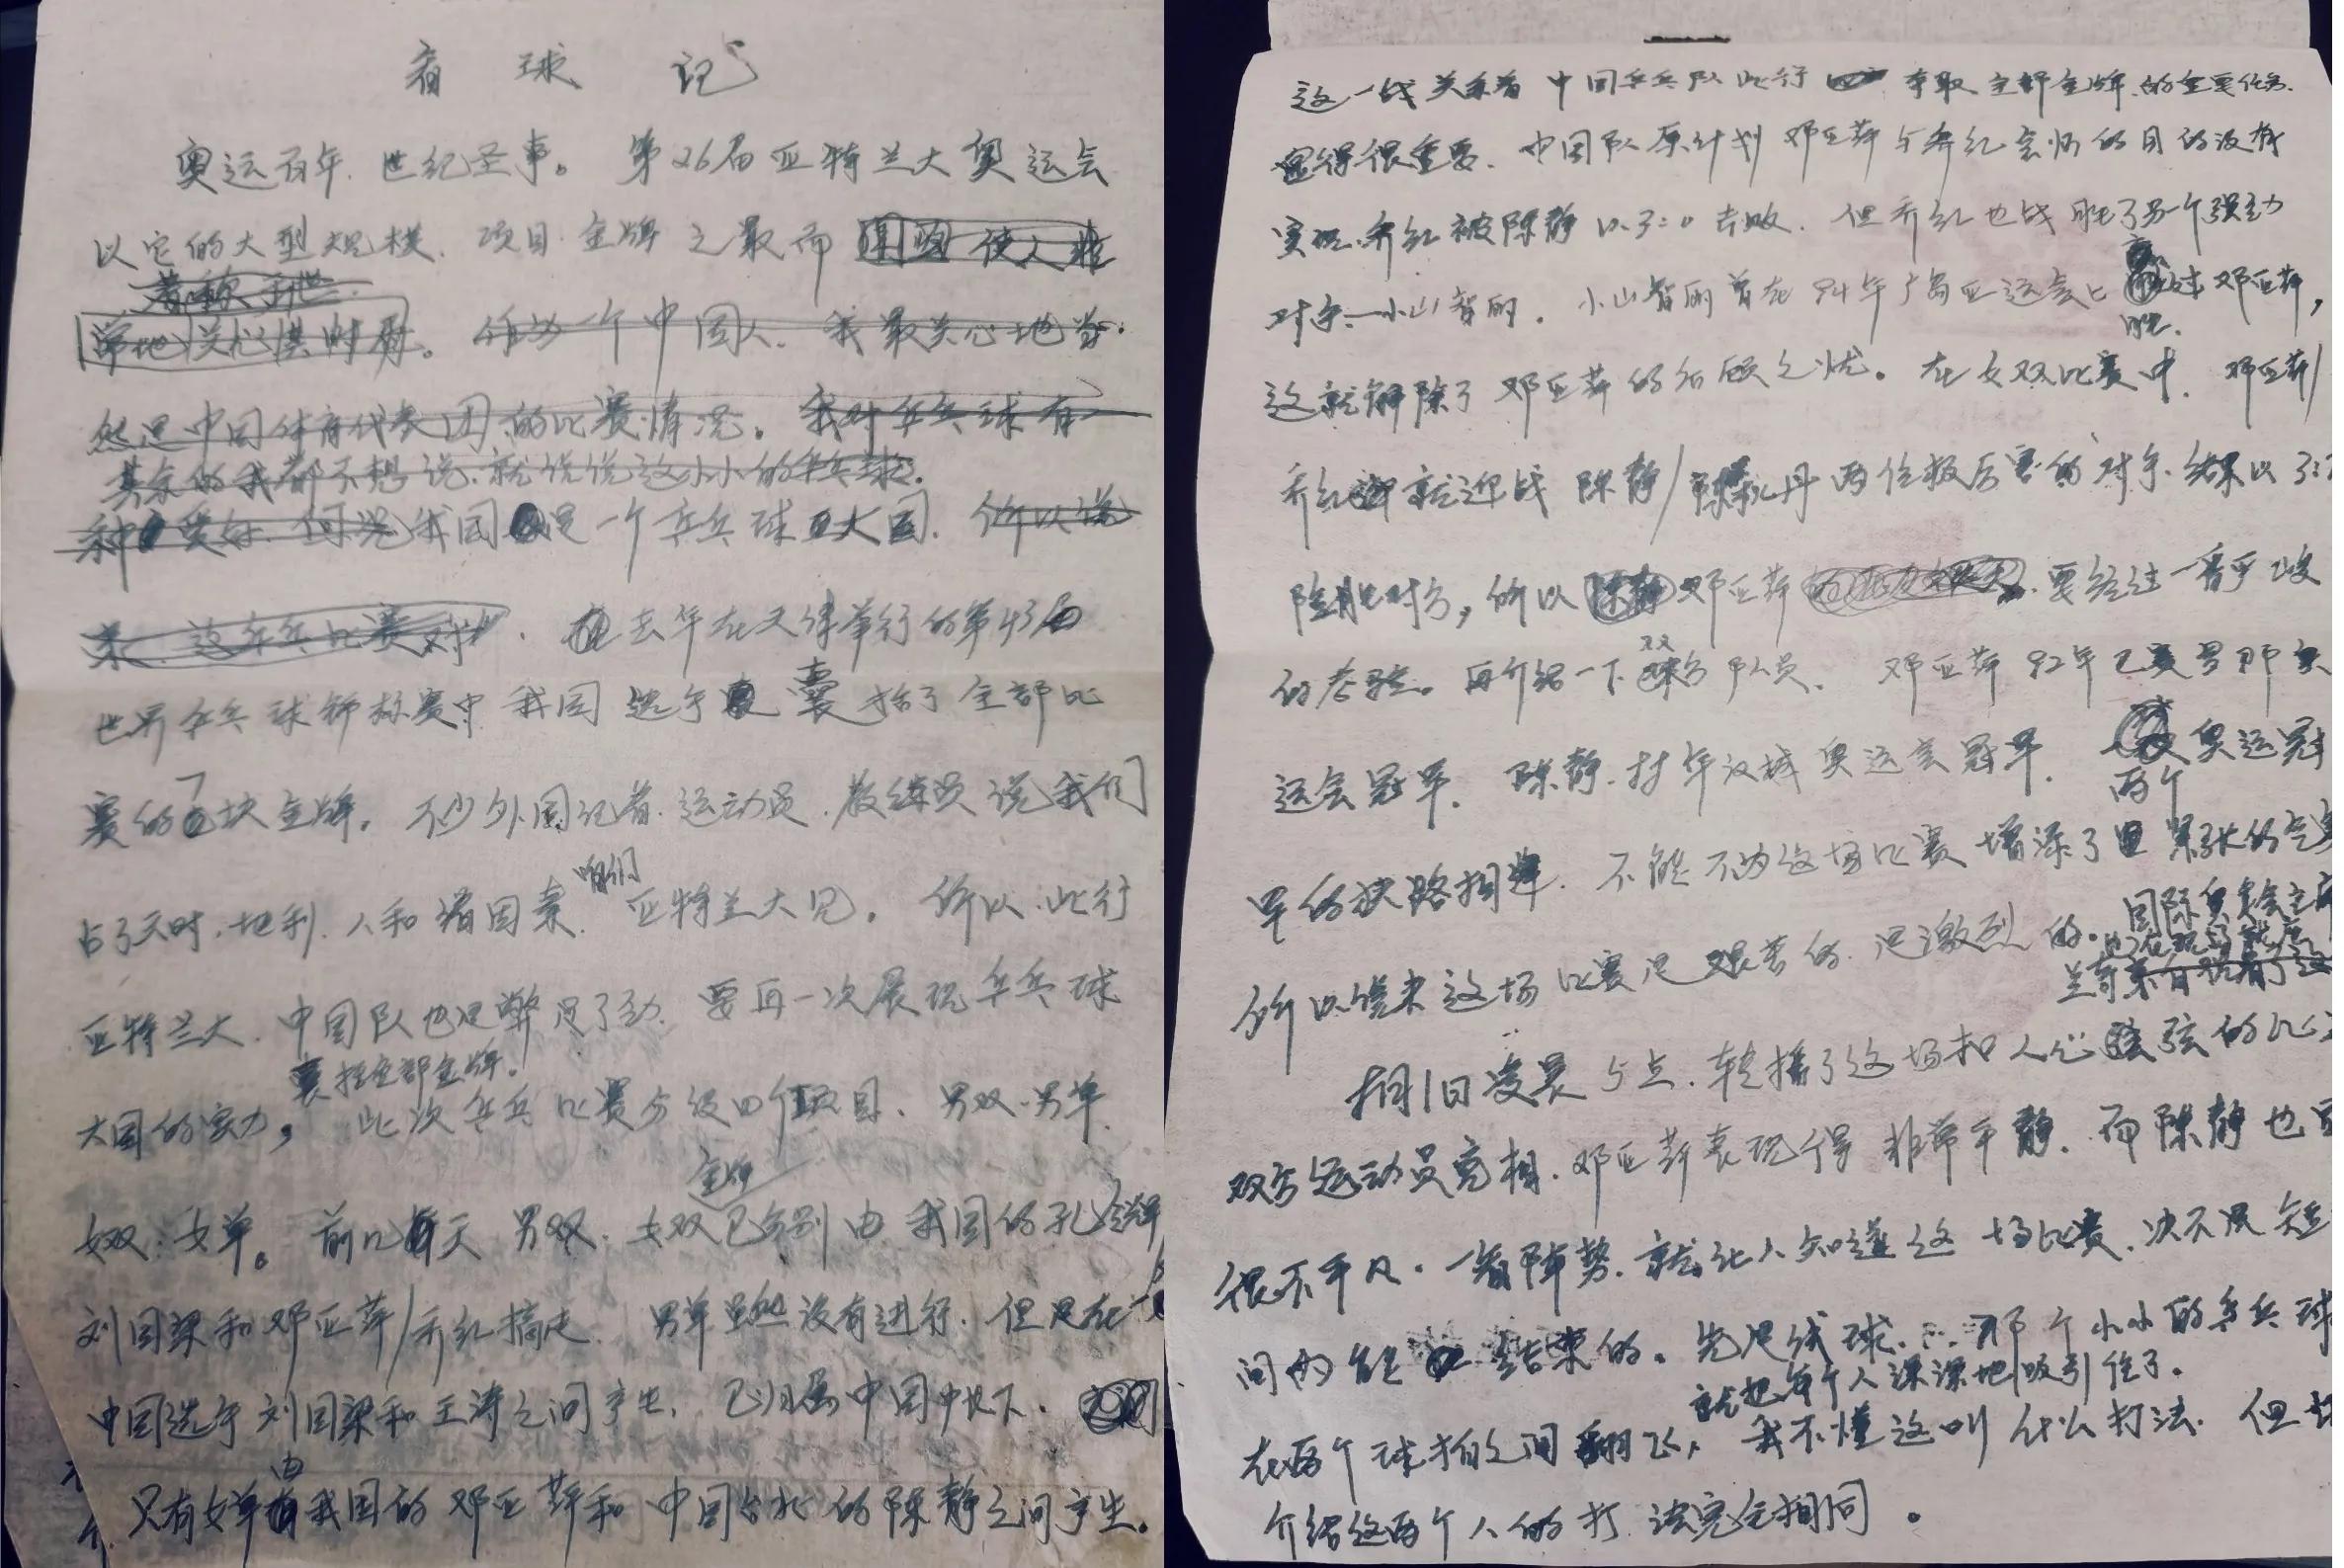 看球记
奥运百年、世纪圣事。第26届亚特兰大奥运会
以它的大型规模、项目、金牌之最而使人非
著称于世
常地关心其时局。作为一个中国人、我最关心地当
然是中国体育代表团的比赛情况。我对乒乓球有一
其余的我都不想说、就说说这小小的乒乓球。
种爱好、何况我国是一个乒乓球大国、所以说
来、这乒乓比赛对、去年在天津举行的第43届
世界乒乓球锦标赛中我国选手囊括了全部比
赛的7块金牌。不少外国记者、运动员、教练员说我们
占了天时、地利、人和诸因素、咱们亚特兰大见。所以、此行
亚特兰大、中国队也是憋足了劲、要再一次展现乒乓球
囊括全部金牌。
大国的实力，此次乒乓比赛分设四个项目、男双、男单、
金牌
女双、女单。前几天男双、女双已分别由我国的孔令辉
刘国梁和邓亚萍/乔红摘走、男单虽然没有进行、但是在
中国选手刘国梁和王涛之间产生、已归属中国帐下。
只有女单由我国的邓亚萍和中国台北的陈静之间产生。
这一战关系着中国乒乓队此行夺取全部金牌的重要任务、
显得很重要、中国队原计划邓亚萍与乔红会师的目的没有
实现、乔红被陈静以3:0击败、但乔红也战胜了另一个强劲
对手：小山智丽。小山智丽曾在94年广岛亚运会上胜过邓亚萍，
这就解除了邓亚萍的后顾之忧。在女双比赛中、邓亚萍/
乔红就迎战陈静/陈秋丹两位极厉害的对手、结果以3:
险胜对方，所以邓亚萍要经过一番严峻
的考验。再介绍一下双方队员、邓亚萍92年巴赛罗那奥
运会冠军、陈静、88年汉城奥运会冠军、两个奥运冠
军的狭路相逢、不能不为这场比赛增添了紧张的气
所以说来这场比赛是艰苦的、是激烈的。国际奥委会主席
31日凌晨5点、转播了这场扣人心弦的比
双方运动员亮相、邓亚萍表现得非常平静、而陈静也
很不平凡、一看阵势、就让人知道这场比赛、决不是短
间内能结束的。先是线球、那个小小的乒乓球
就把每个人深深地吸引住了。
在两个球拍之间翻飞，我不懂这叫什么打法、但
介绍这两个人的打法完全相同。